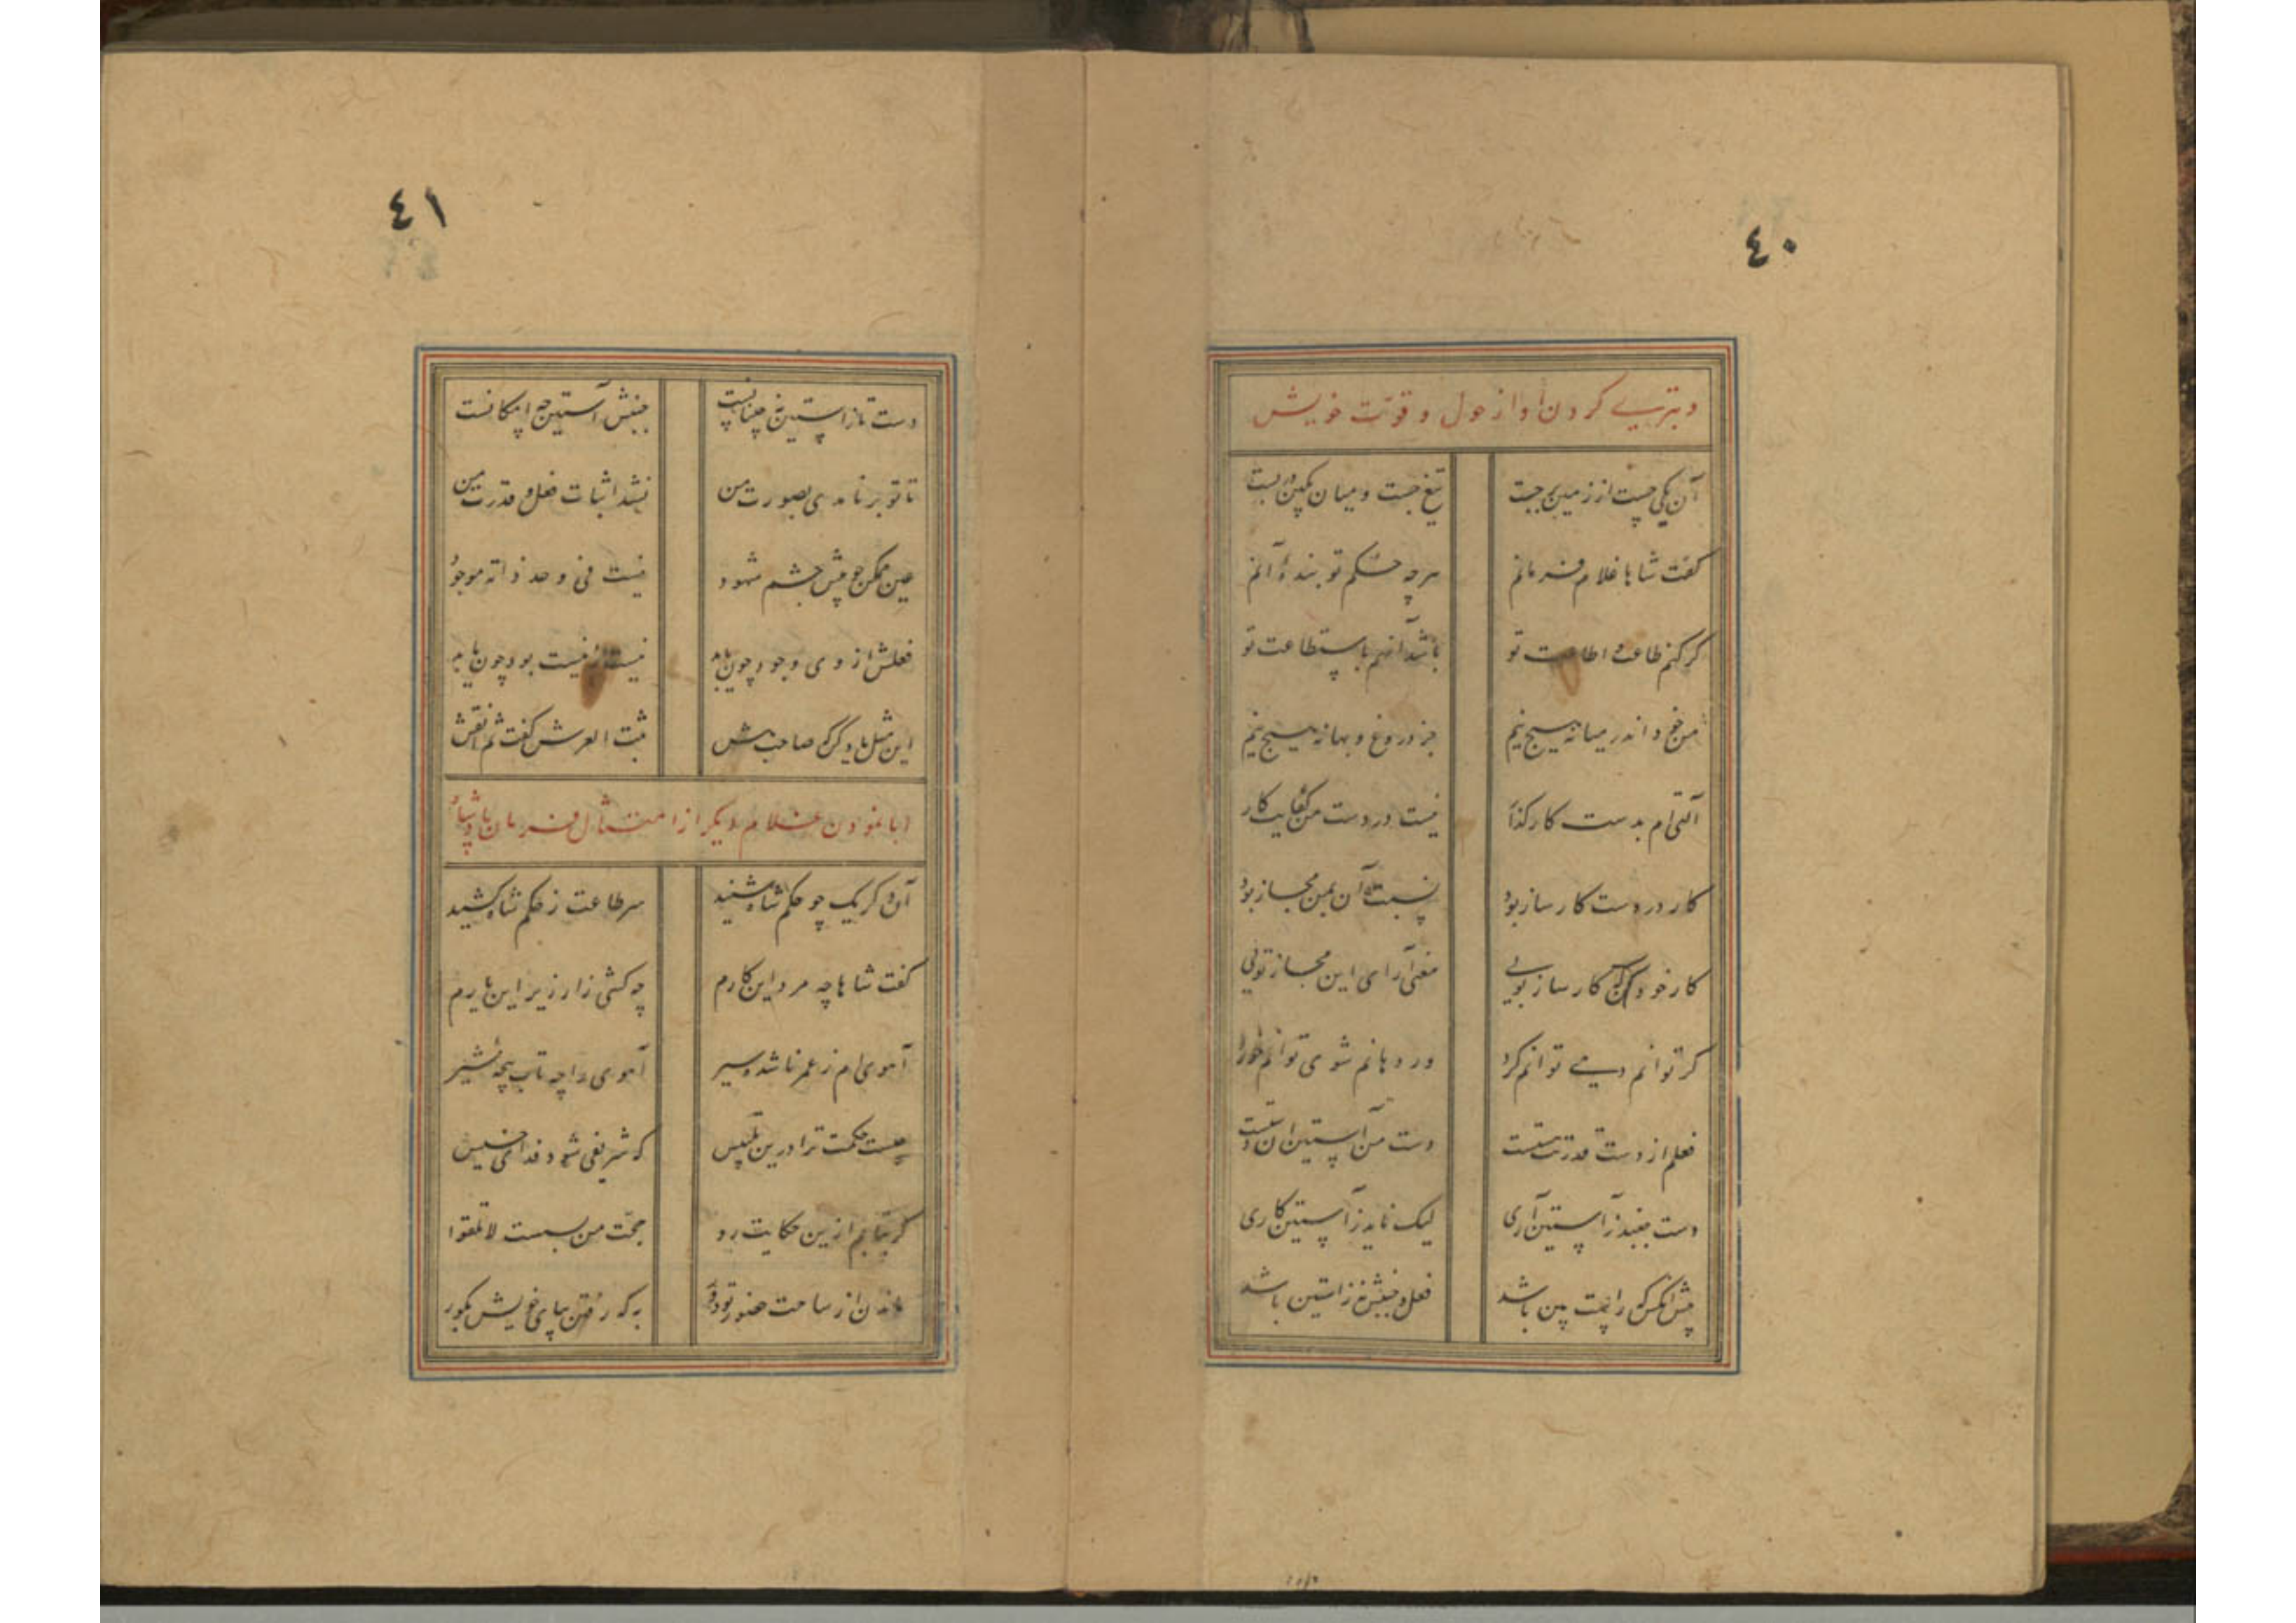 ٤٠
و تبری کردن او از حول و قوت خویش
آن یکی چست از زمین برجست تیغ جست و میان بکین دربست
کفت شاها غلام فرمانم هرچه حکم تو بندهٔ آنم
کر کنم طاعت و اطاعت تو باشد آنهم باستطاعت تو
من خود اندر میانه هیچ نیم جز دروغ و بهانه هیچ نیم
آلتی‌ام بدست کارکذار نیست در دست من کفایت کار
کار در دست کارساز بود نسبت آن بمن مجاز بود
کار خود کن که کارساز تویی معنی‌آرای این مجاز تویی
کر توانم دهی توانم کرد ور دهانم شوی توانم خورد
فعلم از دست قدرت تست دست من آستین آن دست
دست جنبد ز آستین آری لیک ناید ز آستین کاری
پیش آنکس که راست بین باشد فعل و جنبش نه ز آستین باشد
٤١
دست تا ز آستین نجنبانیست جنبش آستین چه امکانست
تا تو بر نامدی بصورت من نشد اثبات فعل و قدرت من
عین ممکن چو پیش چشم شهود نیست فی حد ذاته موجود
فعلش از وی وجود چون یابد نیست از نیست بود چون یابد
این مثل یاد کن که صاحب هش ثبت العرش کفت ثم انقش
ابا نمودن غلام دیکر از امتثال فرمان پادشاه
آن دکر یک چو حکم شاه شنید سر طاعت ز حکم شاه کشید
کفت شاها چه مرد این کارم چه کشی زار زیر این بارم
آهوی‌ام ز عمر ناشده سیر آهوی را چه تاب پنجهٔ شیر
چیست حکمت ترا درین تلبیس که شریفی شود فدای خسیس
کر بتابم ازین حکایت رو حجت من بسست لا تلقوا
ماندن از ساحت حضور تو دور به که رفتن بپای خویش بکور